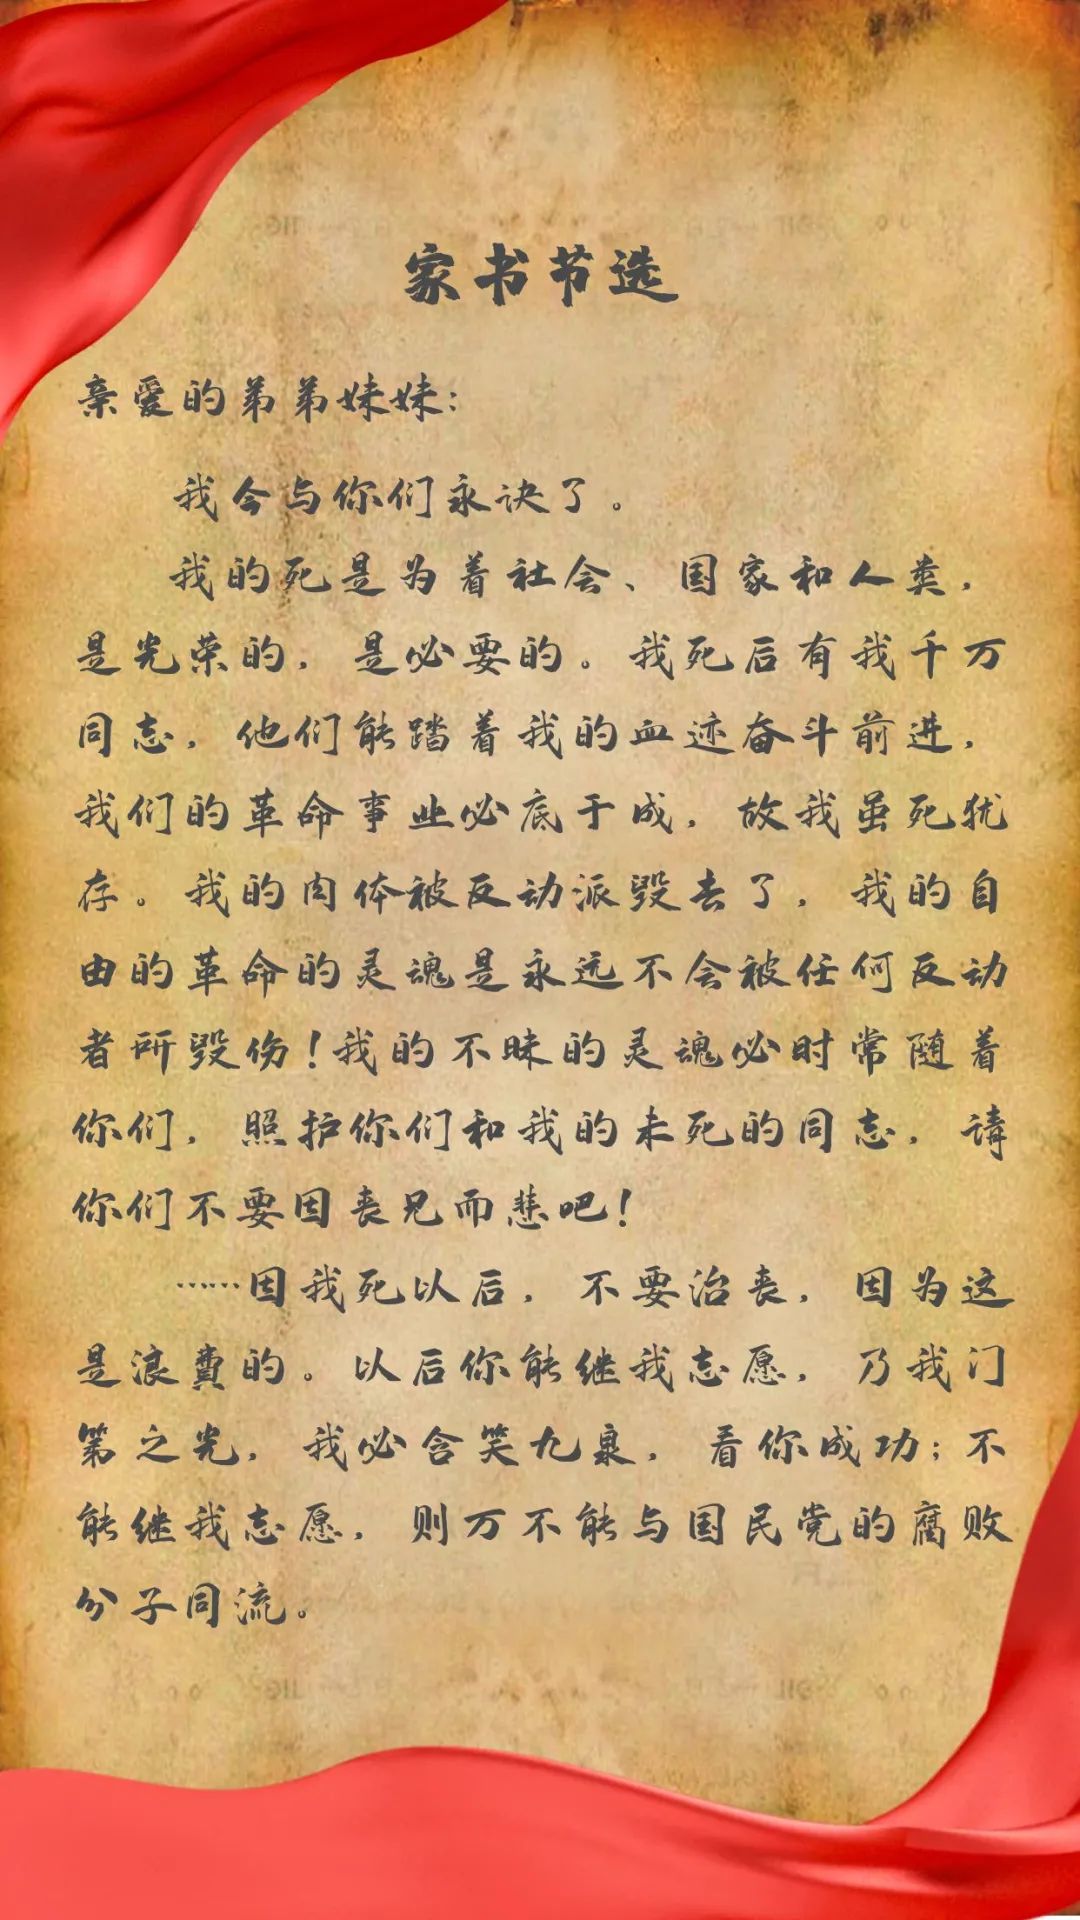 家书节选
亲爱的弟弟妹妹：
我会与你们永诀了。
我的死是为着社会、国家和人类，
是光荣的，是必要的。我死后有我千万
同志，他们能踏着我的血迹奋斗前进，
我们的革命事业必底于成，故我虽死犹
存。我的肉体被反动派毁去了，我的自
由的革命的灵魂是永远不会被任何反动
者所毁伤！我的不昧的灵魂必时常随着
你们，照护你们和我的未死的同志，请
你们不要因丧兄而悲吧！
……因我死以后，不要治丧，因为这
是浪費的。以后你能继我志愿，乃我门
第之光，我必含笑九泉，看你成功；不
能继我志愿，则万不能与国民党的腐败
分子同流。